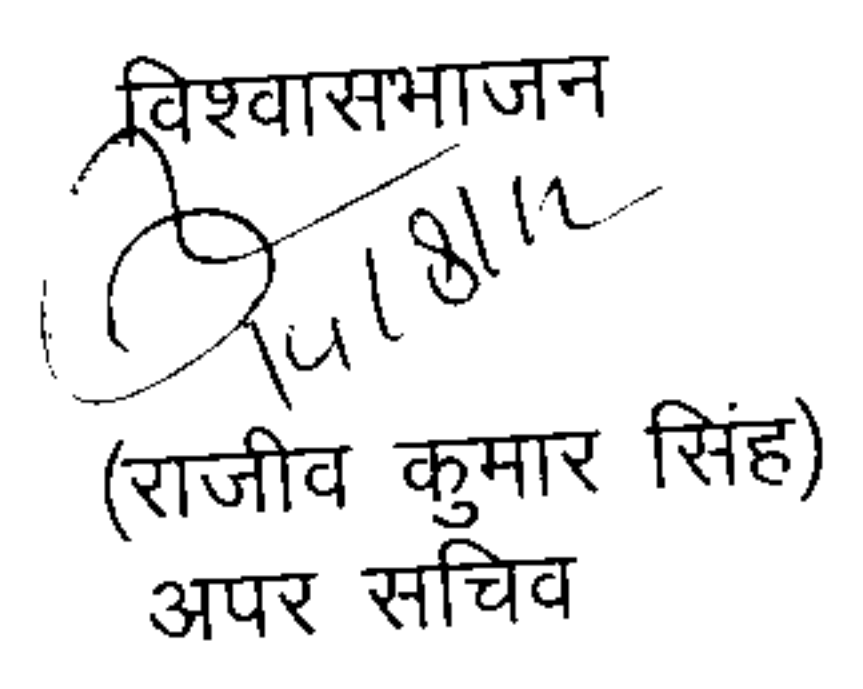 विश्वासभाजन
14/8/12
(राजीव कुमार सिंह)
अपर सचिव